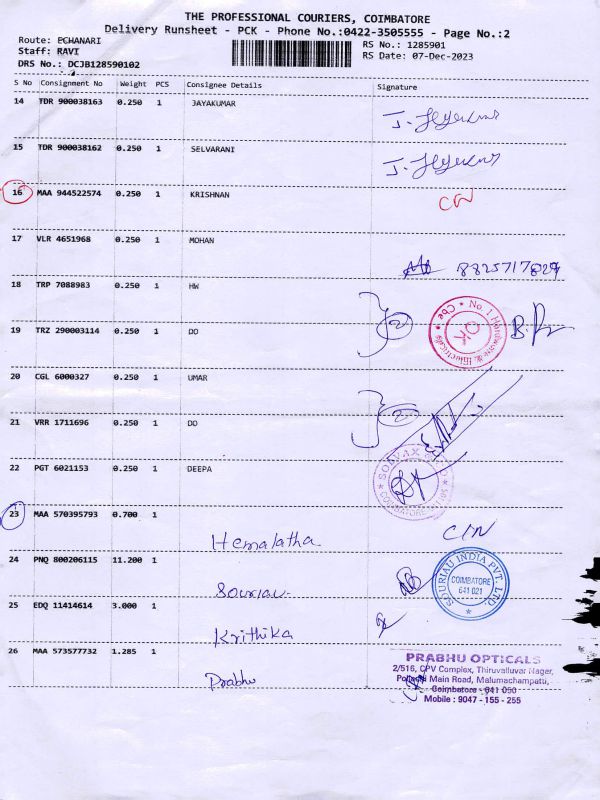 THE PROFESSIONAL COURIERS, COIMBATORE
Delivery Runsheet - PCK - Phone No.:0422-3505555 - Page No.:2
Route: PCHANARI
RS No.: 1285901
Staff: RAVI
RS Date: 07-Dec-2023
DRS No.: DCJB128590102
S No Consignment No Weight PCS Consignee Details Signature
14 TDR 900038163 0.250 1 JAYAKUMAR
15 TDR 900038162 0.250 1 SELVARANI
16 MAA 944522574 0.250 1 KRISHNAN
17 VLR 4651968 0.250 1 MOHAN
8825717829
18 TRP 7088983 0.250 1 HW
2
No.1 Hardware & Electricals Cbe
OK
19 TRZ 290003114 0.250 1 DO
20 CGL 6000327 0.250 1 UMAR
2
21 VRR 1711696 0.250 1 DO
22 PGT 6021153 0.250 1 DEEPA
COIMBATORE
23 MAA 570395793 0.700 1 Hemalatha
24 PNQ 800206115 11.200 1 Souriau
SOURIAU INDIA PVT. LTD.
COIMBATORE
641 021
25 EDQ 11414614 3.000 1 Krithika
26 MAA 573577732 1.285 1 Prabhu
PRABHU OPTICALS
2/516, CPV Complex, Thiruvalluvar Nagar,
Pollachi Main Road, Malumachampatti,
Coimbatore - 641 050
Mobile : 9047 - 155 - 255